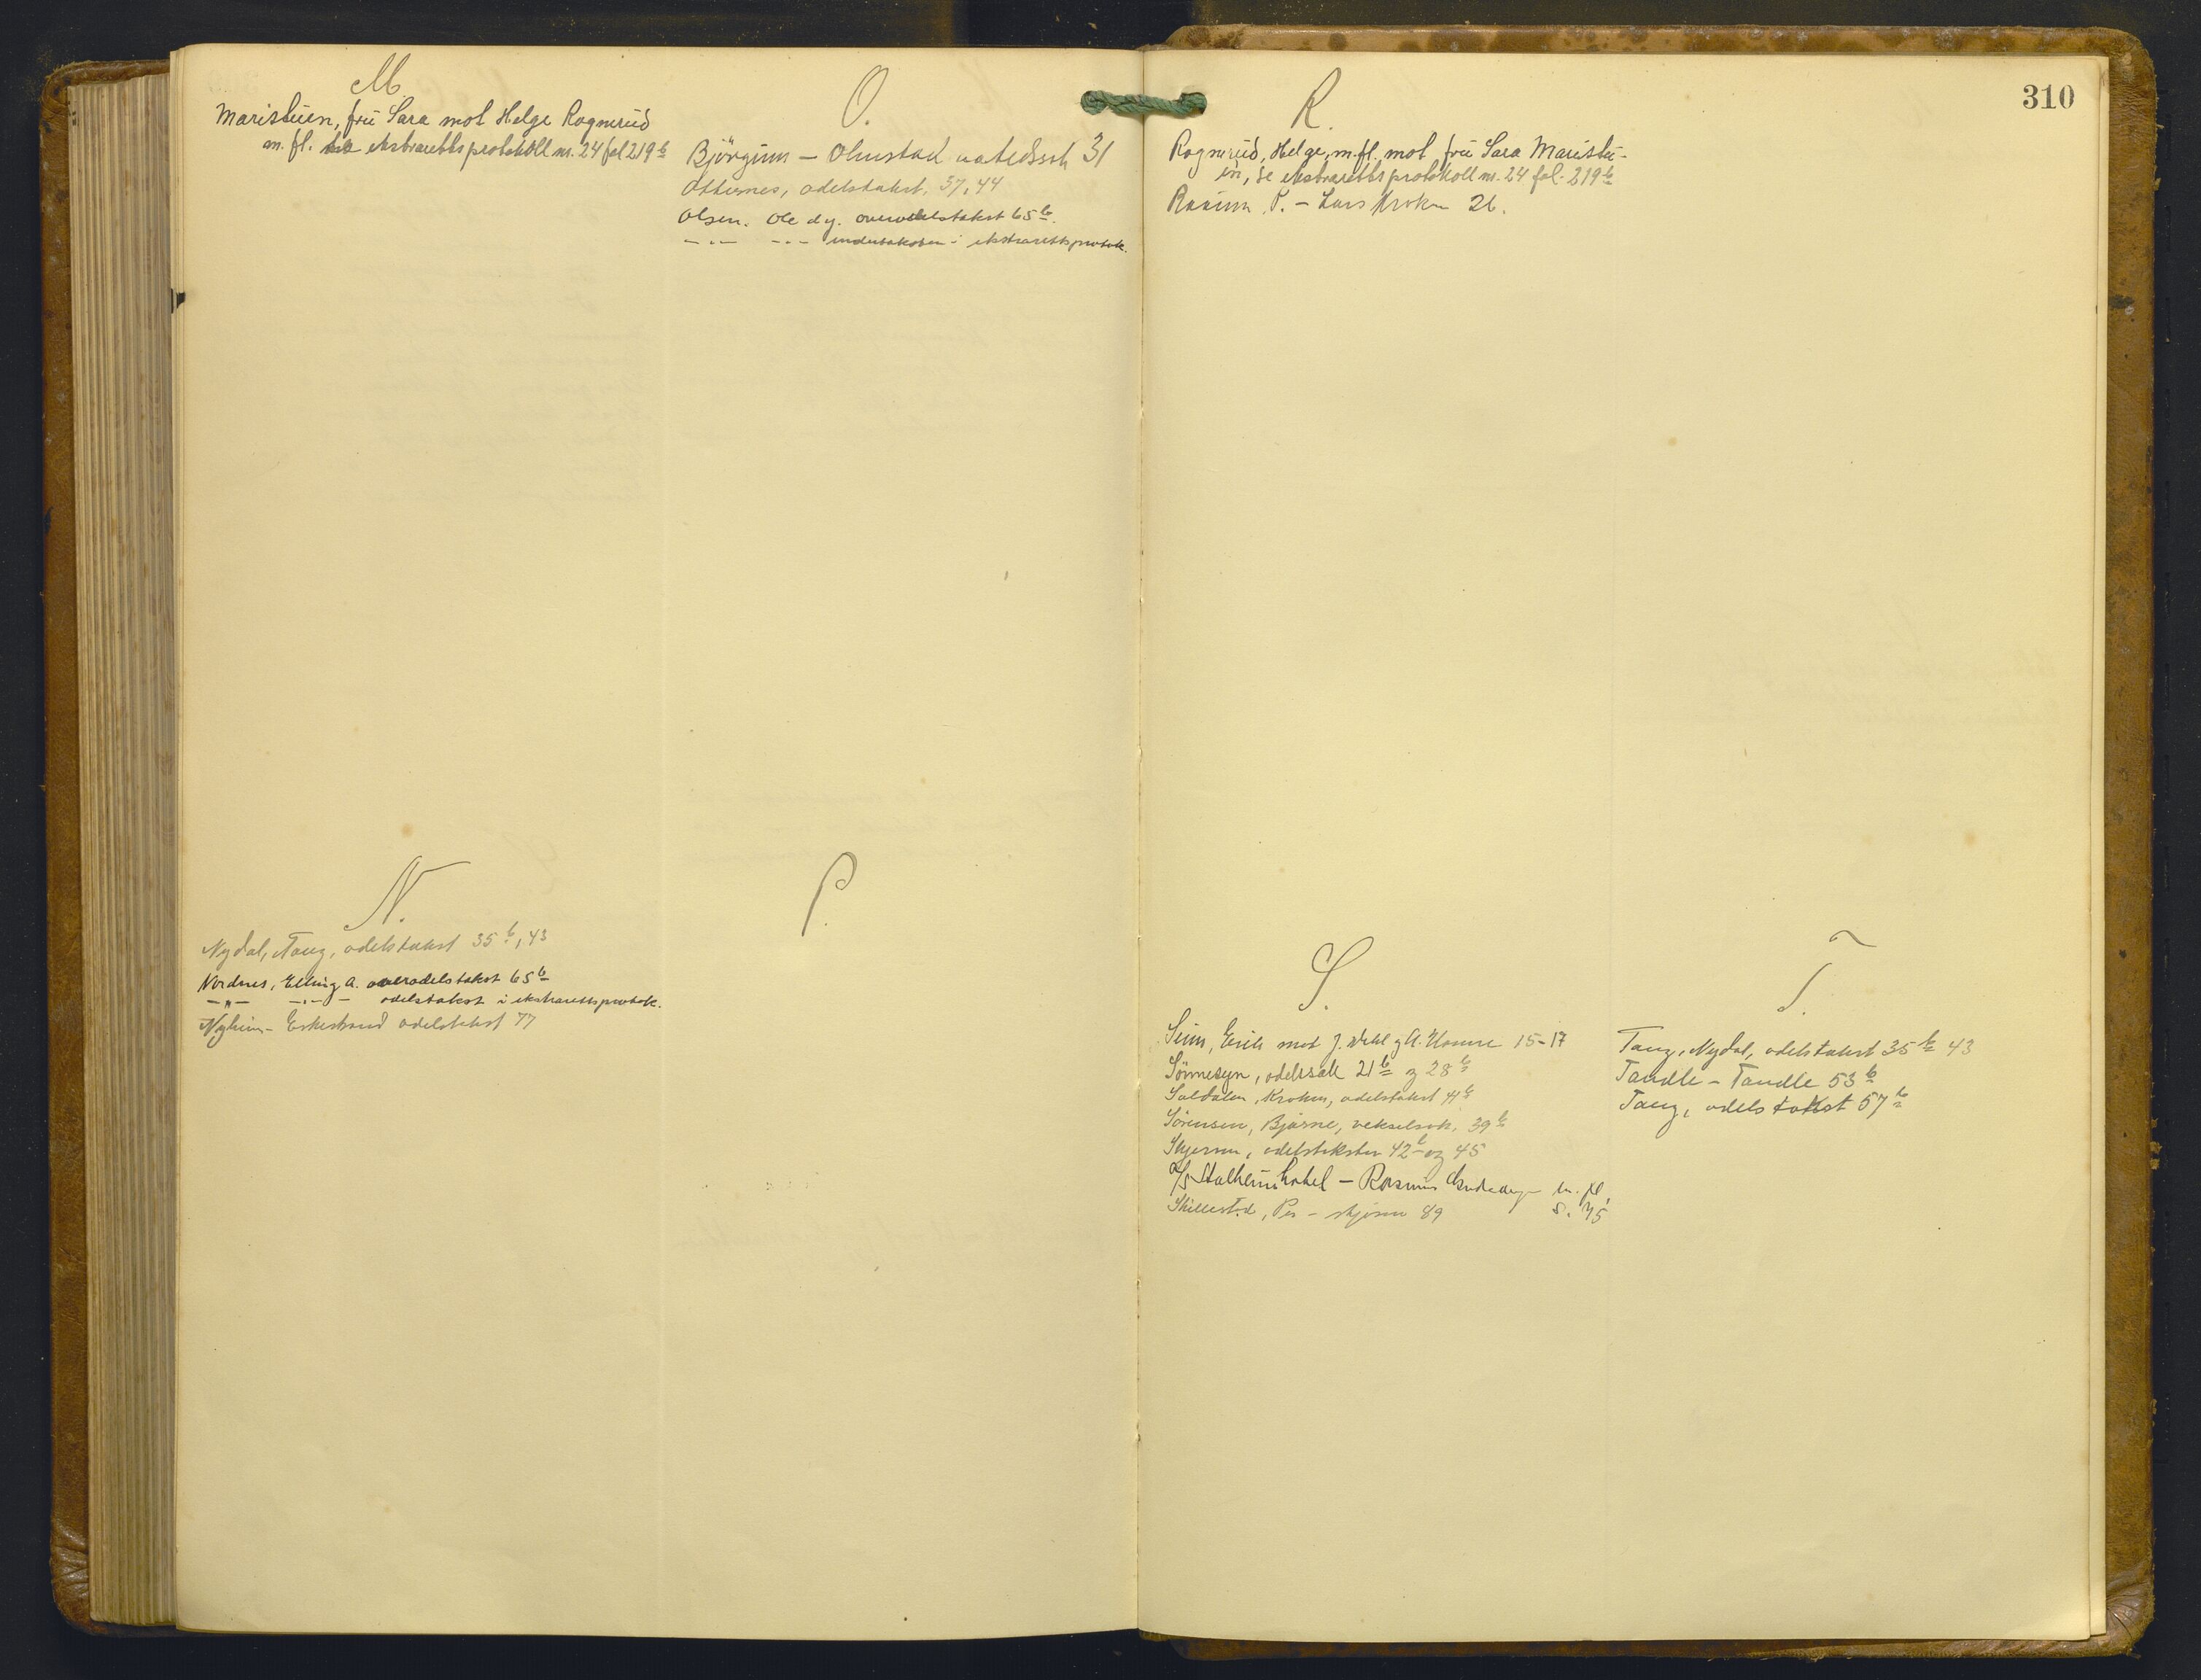 M.
Maristuen, frú Sara mot Helge Rognerud
m. fl. ekstrarettsprotokoll nr. 24 fol 219 b
N.
Nydal, Tang, odelstakst 35 b, 43
Nordnes, Elling A. overodelstakst 65 b
— „ — — „ — odelstakst i ekstrarettsprotok.
Nyheim - odelstakst 77
O.
Bjørgum — Olmstad 31
Otternes, odelstakst, 37, 44
Olsen. Ole d.y. overodelstakst 65 b.
— „ — — „ — undertakster i ekstrarettsprotok.
P.
310
R.
Rognerud, Helge, m. fl. mot frú Sara Maristu-
en, se ekstrarettsprotokoll nr. 24 fol. 219 b
P. - Lars Kroken 26.
S.
Seim, Erik mot J. Dahl og A. 15-17
Sønnesyn, odelssak 21 b og 28 b
Soldalen, Kroken, odelstakst 41 b
Sørensen, Bjarne, vekselsak, 39 b
odelstakster 42 b og 45
A/S Stalheim hotel — Rasmus m. fl.,
s. 75
Skillestad, Per - 89
T.
Tang, Nydal, odelstakst 35 b 43
Tandle - Tandle 53 b
Tang, odelstakst 57 b